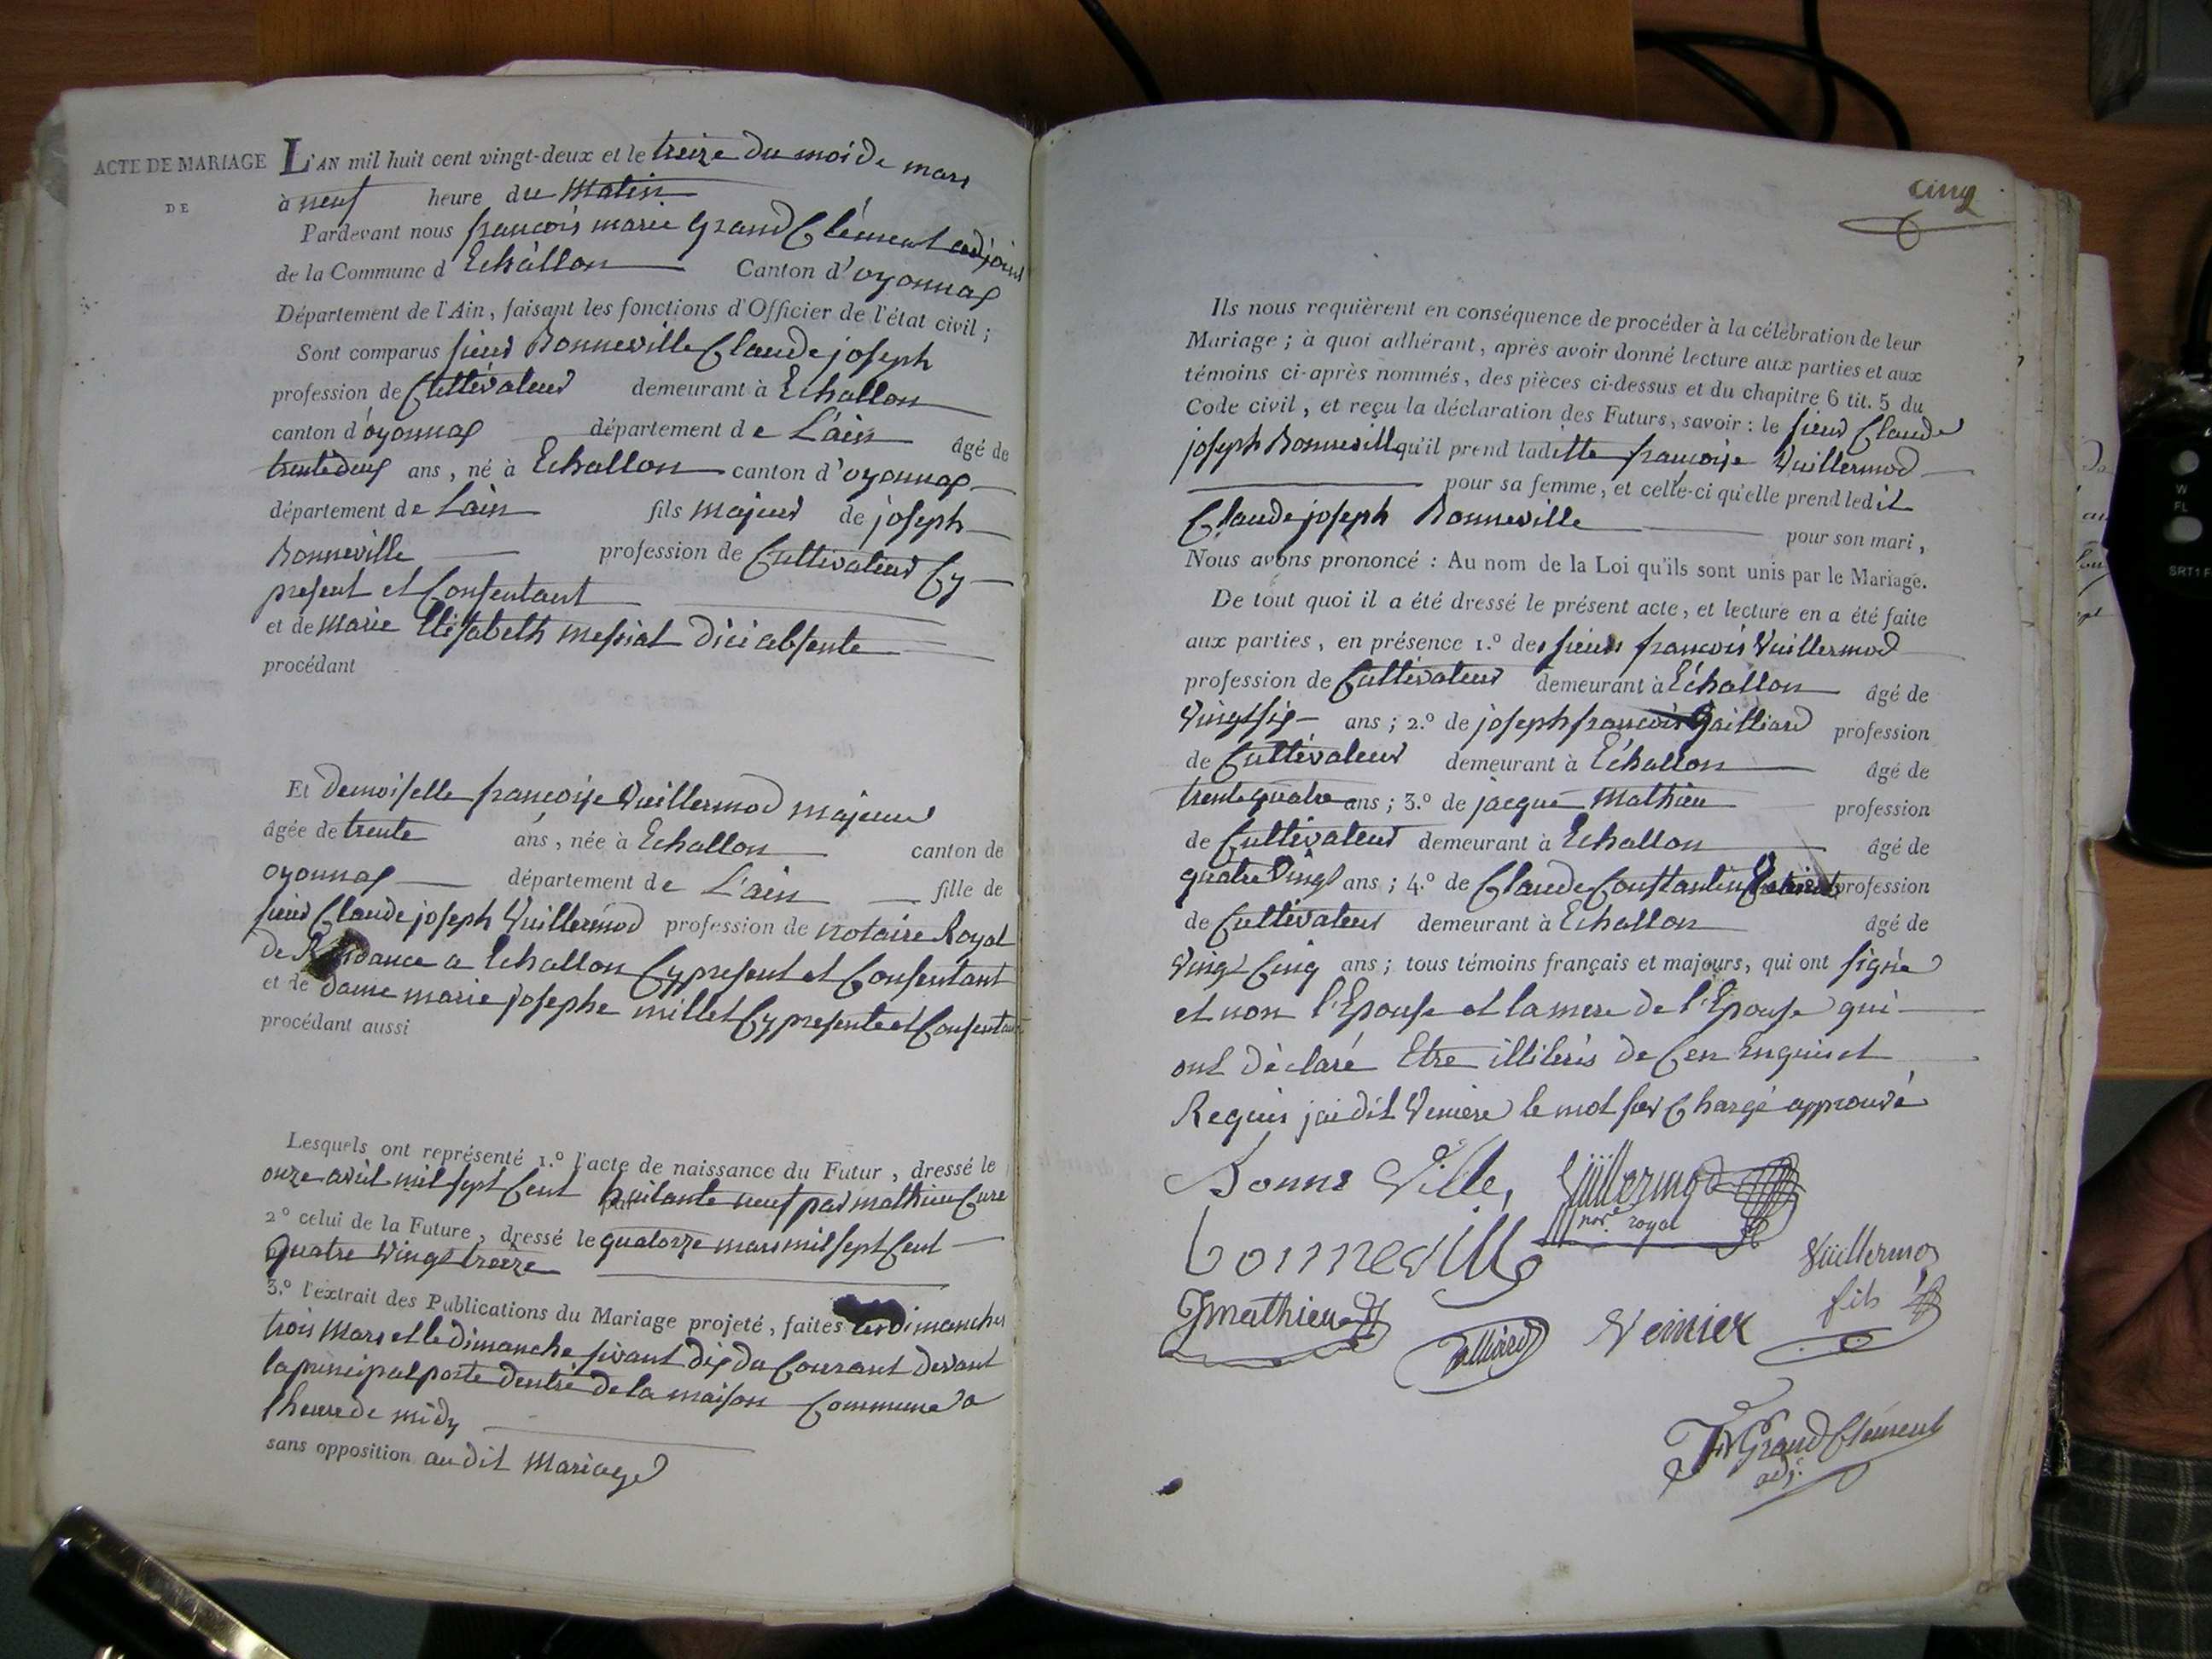 ACTE DE MARIAGE
DE
L'AN mil huit cent vingt-deux et le treize du moi de mars
à neuf heure du Matin
Pardevant nous francois marie Grand Clément adjoint
de la Commune d Echallon Canton d'oyonnax
Département de l'Ain, faisant les fonctions d'Officier de l'état civil ;
Sont comparus sieur Bonneville Claude joseph
profession de Cultivateur demeurant à Echallon
canton d'oyonnax département de L'ain âgé de
trente deux ans, né à Echallon canton d'oyonnax
département de Lain fils majeur de joseph
Bonneville profession de Cultivateur Cy
present et Consentant
et de marie Elisabeth messiat dici absente
procédant
Et demoiselle francoise Vuillermod majeure
âgée de trente ans, née à Echallon canton de
oyonnax département de L'ain fille de
sieur Claude joseph Vuillermod profession de notaire Royal
de Residance a Echallon Cy present et Consentant
et de dame marie josephe millet Cy presente et Consentante
procédant aussi
Lesquels ont représenté 1.º l'acte de naissance du Futur, dressé le
onze avril mil sept Cent huitante neuf par mathieu Cure
2º celui de la Future, dressé le quatorze mars mil sept Cent
quatre vingt treize
3.º l'extrait des Publications du Mariage projeté, faites les Dimanches
trois Mars et le dimanche sivant dix du Courant devant
la principal porte dentré de la maison Commune a
lheure de midy
sans opposition au dit Mariage
cinq
Ils nous requièrent en conséquence de procéder à la célébration de leur
Mariage ; à quoi adhérant, après avoir donné lecture aux parties et aux
témoins ci-après nommés, des pièces ci-dessus et du chapitre 6 tit. 5 du
Code civil, et reçu la déclaration des Futurs, savoir : le sieur Claude
joseph Bonneville qu'il prend laditte françoise Vuillermod
pour sa femme, et celle-ci qu'elle prend ledit
Claude joseph Bonneville pour son mari,
Nous avons prononcé : Au nom de la Loi qu'ils sont unis par le Mariage.
De tout quoi il a été dressé le présent acte, et lecture en a été faite
aux parties, en présence 1.º des sieurs francois Vuillermod
profession de Cultivateur demeurant à Echallon âgé de
vingt six ans ; 2.º de joseph francois Gailliard profession
de Cultivateur demeurant à Echallon âgé de
trente quatre ans ; 3.º de jacque Mathieu profession
de Cultivateur demeurant à Echallon âgé de
quatre vingt ans ; 4.º de Claude Constantin profession
de Cultivateur demeurant à Echallon âgé de
vingt Cinq ans ; tous témoins français et majeurs, qui ont signé
et non l'Epouse et la mere de l'Epouse qui
ont déclaré Etre illiterés de Cen Enquis et
Requis jai dit Veniere le mot sur Chargé approuvé
Bonne Ville, Vuillermod
nore royal
bonneville Vuillermoz
fils
Jmathieu Veinier
JM Grand Clément
adj.
W
FL